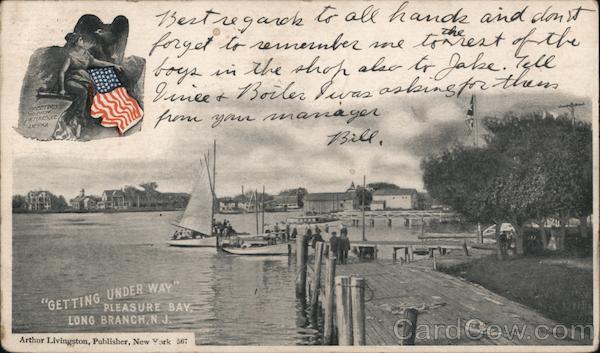 Best regards to all hands and don't
forget to remember me to the rest of the
boys in the shop also to Jake. Tell
Vinee & Boiler I was asking for them
from your manager
Bill.
GREETINGS
FROM
PICTURESQUE
AMERICA
"GETTING UNDER WAY"
PLEASURE BAY,
LONG BRANCH, N.J.
Arthur Livingston, Publisher, New York 567
CardCow.com